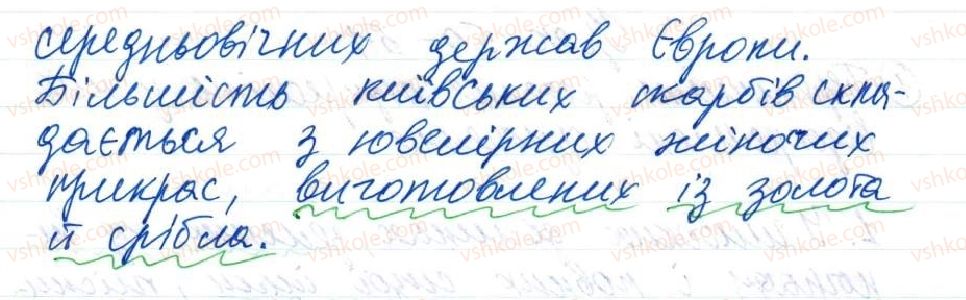 середньовічних держав Європи.
Більшість київських скарбів скла-
дається з ювелірних жіночих
прикрас, виготовлених із золота
й срібла.